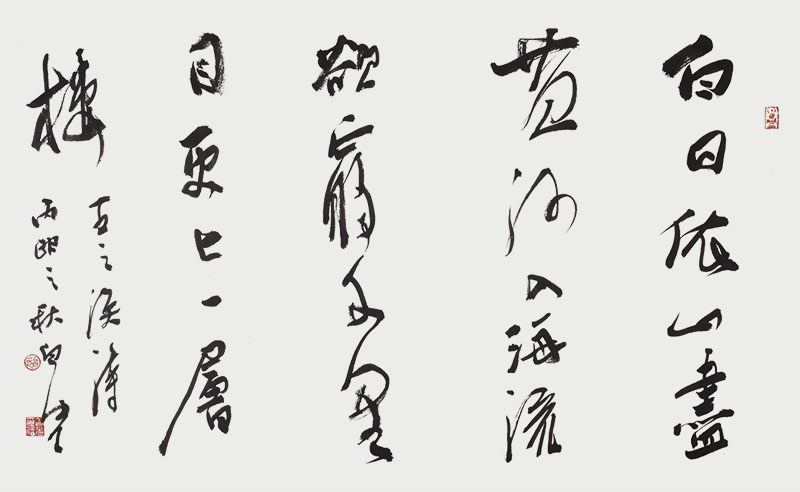 白日依山盡
黃河入海流
欲窮千里
目更上一層
樓
王之渙
丙之秋